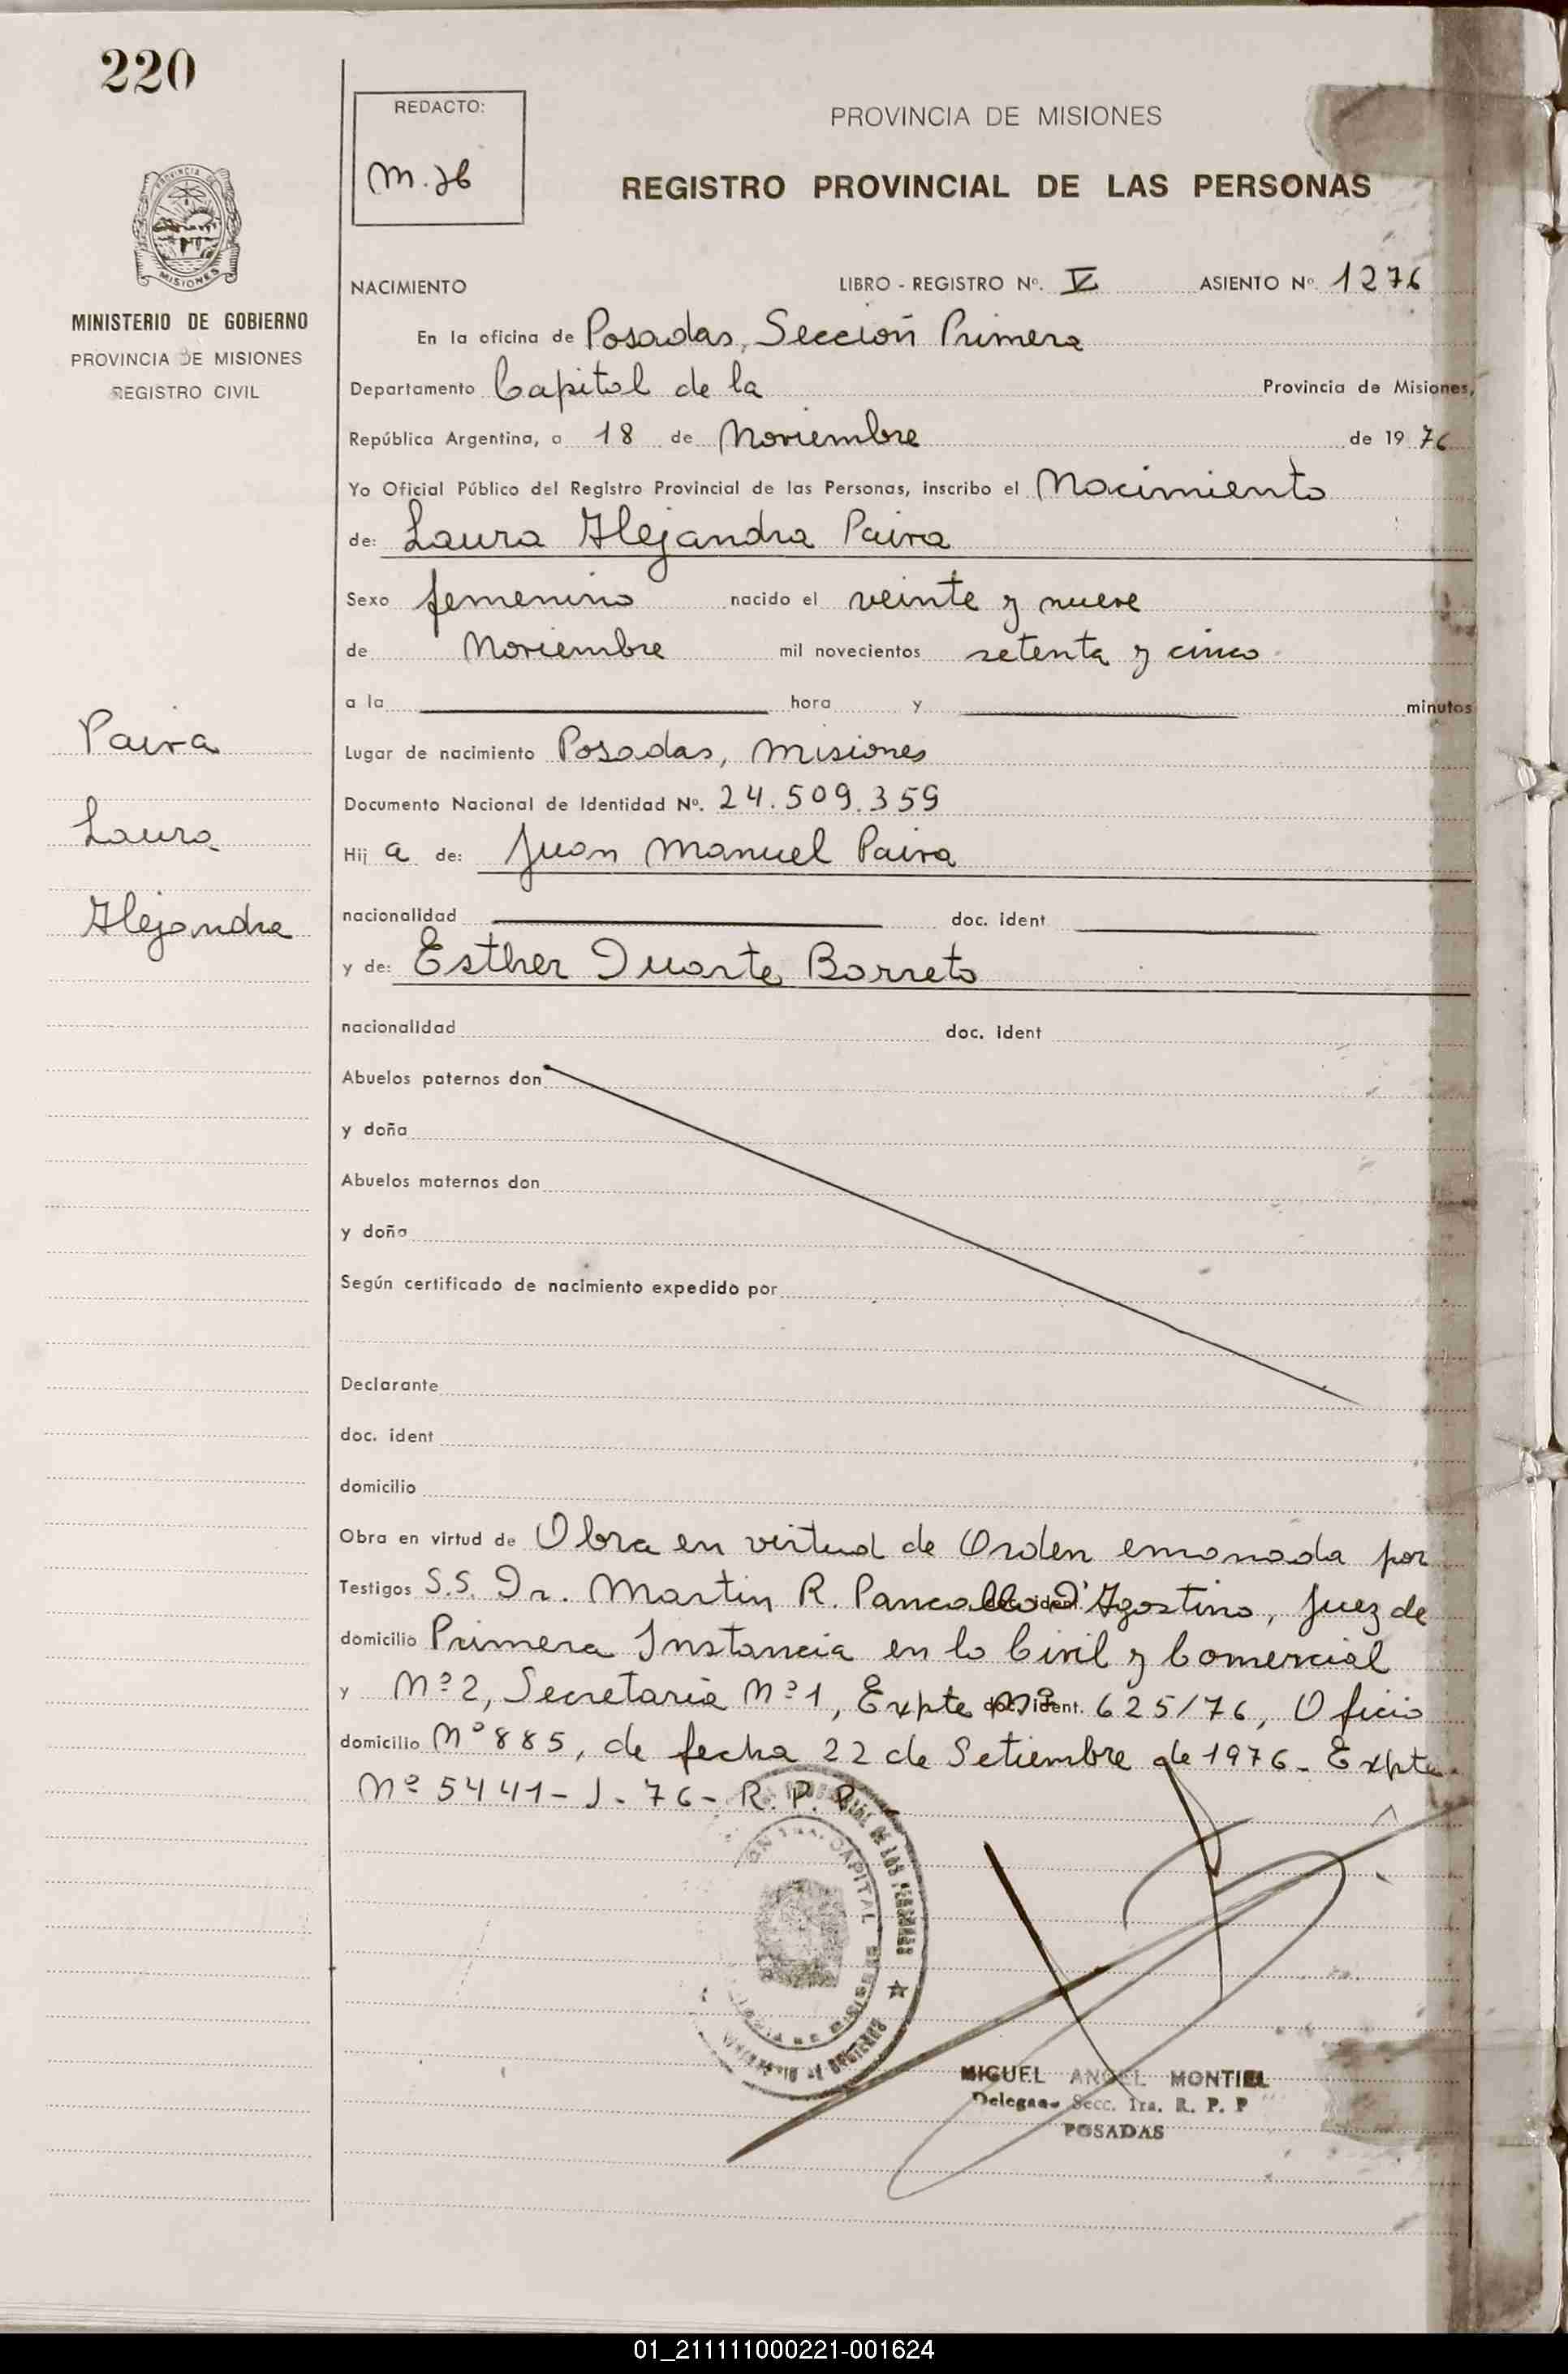 220
REDACTO:
M.
PROVINCIA DE MISIONES
REGISTRO PROVINCIAL DE LAS PERSONAS
PROVINCIA DE
MISIONES
MINISTERIO DE GOBIERNO
PROVINCIA DE MISIONES
REGISTRO CIVIL
NACIMIENTO LIBRO - REGISTRO Nº. V ASIENTO Nº 1276
En la oficina de Posadas, Sección Primera
Departamento Capital de la Provincia de Misiones,
República Argentina, a 18 de Noviembre de 1976
Yo Oficial Público del Registro Provincial de las Personas, inscribo el Nacimiento
de: Laura Alejandra Paiva
Sexo femenino nacido el veinte y nueve
de Noviembre mil novecientos setenta y cinco
a la hora y minutos
Lugar de nacimiento Posadas, Misiones
Documento Nacional de Identidad Nº. 24.509.359
Hij a de: Juan Manuel Paiva
nacionalidad doc. ident
y de: Esther Duarte Barreto
nacionalidad doc. ident
Abuelos paternos don
y doña
Abuelos maternos don
y doña
Según certificado de nacimiento expedido por
Declarante
doc. ident
domicilio
Obra en virtud de Obra en virtud de Orden emanada por
Testigos S.S. Dr. Martin R. Pancallo D'Agostino, Juez de
domicilio Primera Instancia en lo Civil y Comercial
y Nº 2, Secretaria Nº 1, Expte Nº doc. ident. 625/76, Oficio
domicilio Nº 885, de fecha 22 de Setiembre de 1976 - Expte
Nº 5441 - J - 76 - R. P. P.
Paiva
Laura
Alejandra
CAPITAL
DE LAS PERSONAS
MIGUEL ANGEL MONTIEL
Delegado Secc. 1ra. R. P. P
POSADAS
01_211111000221-001624